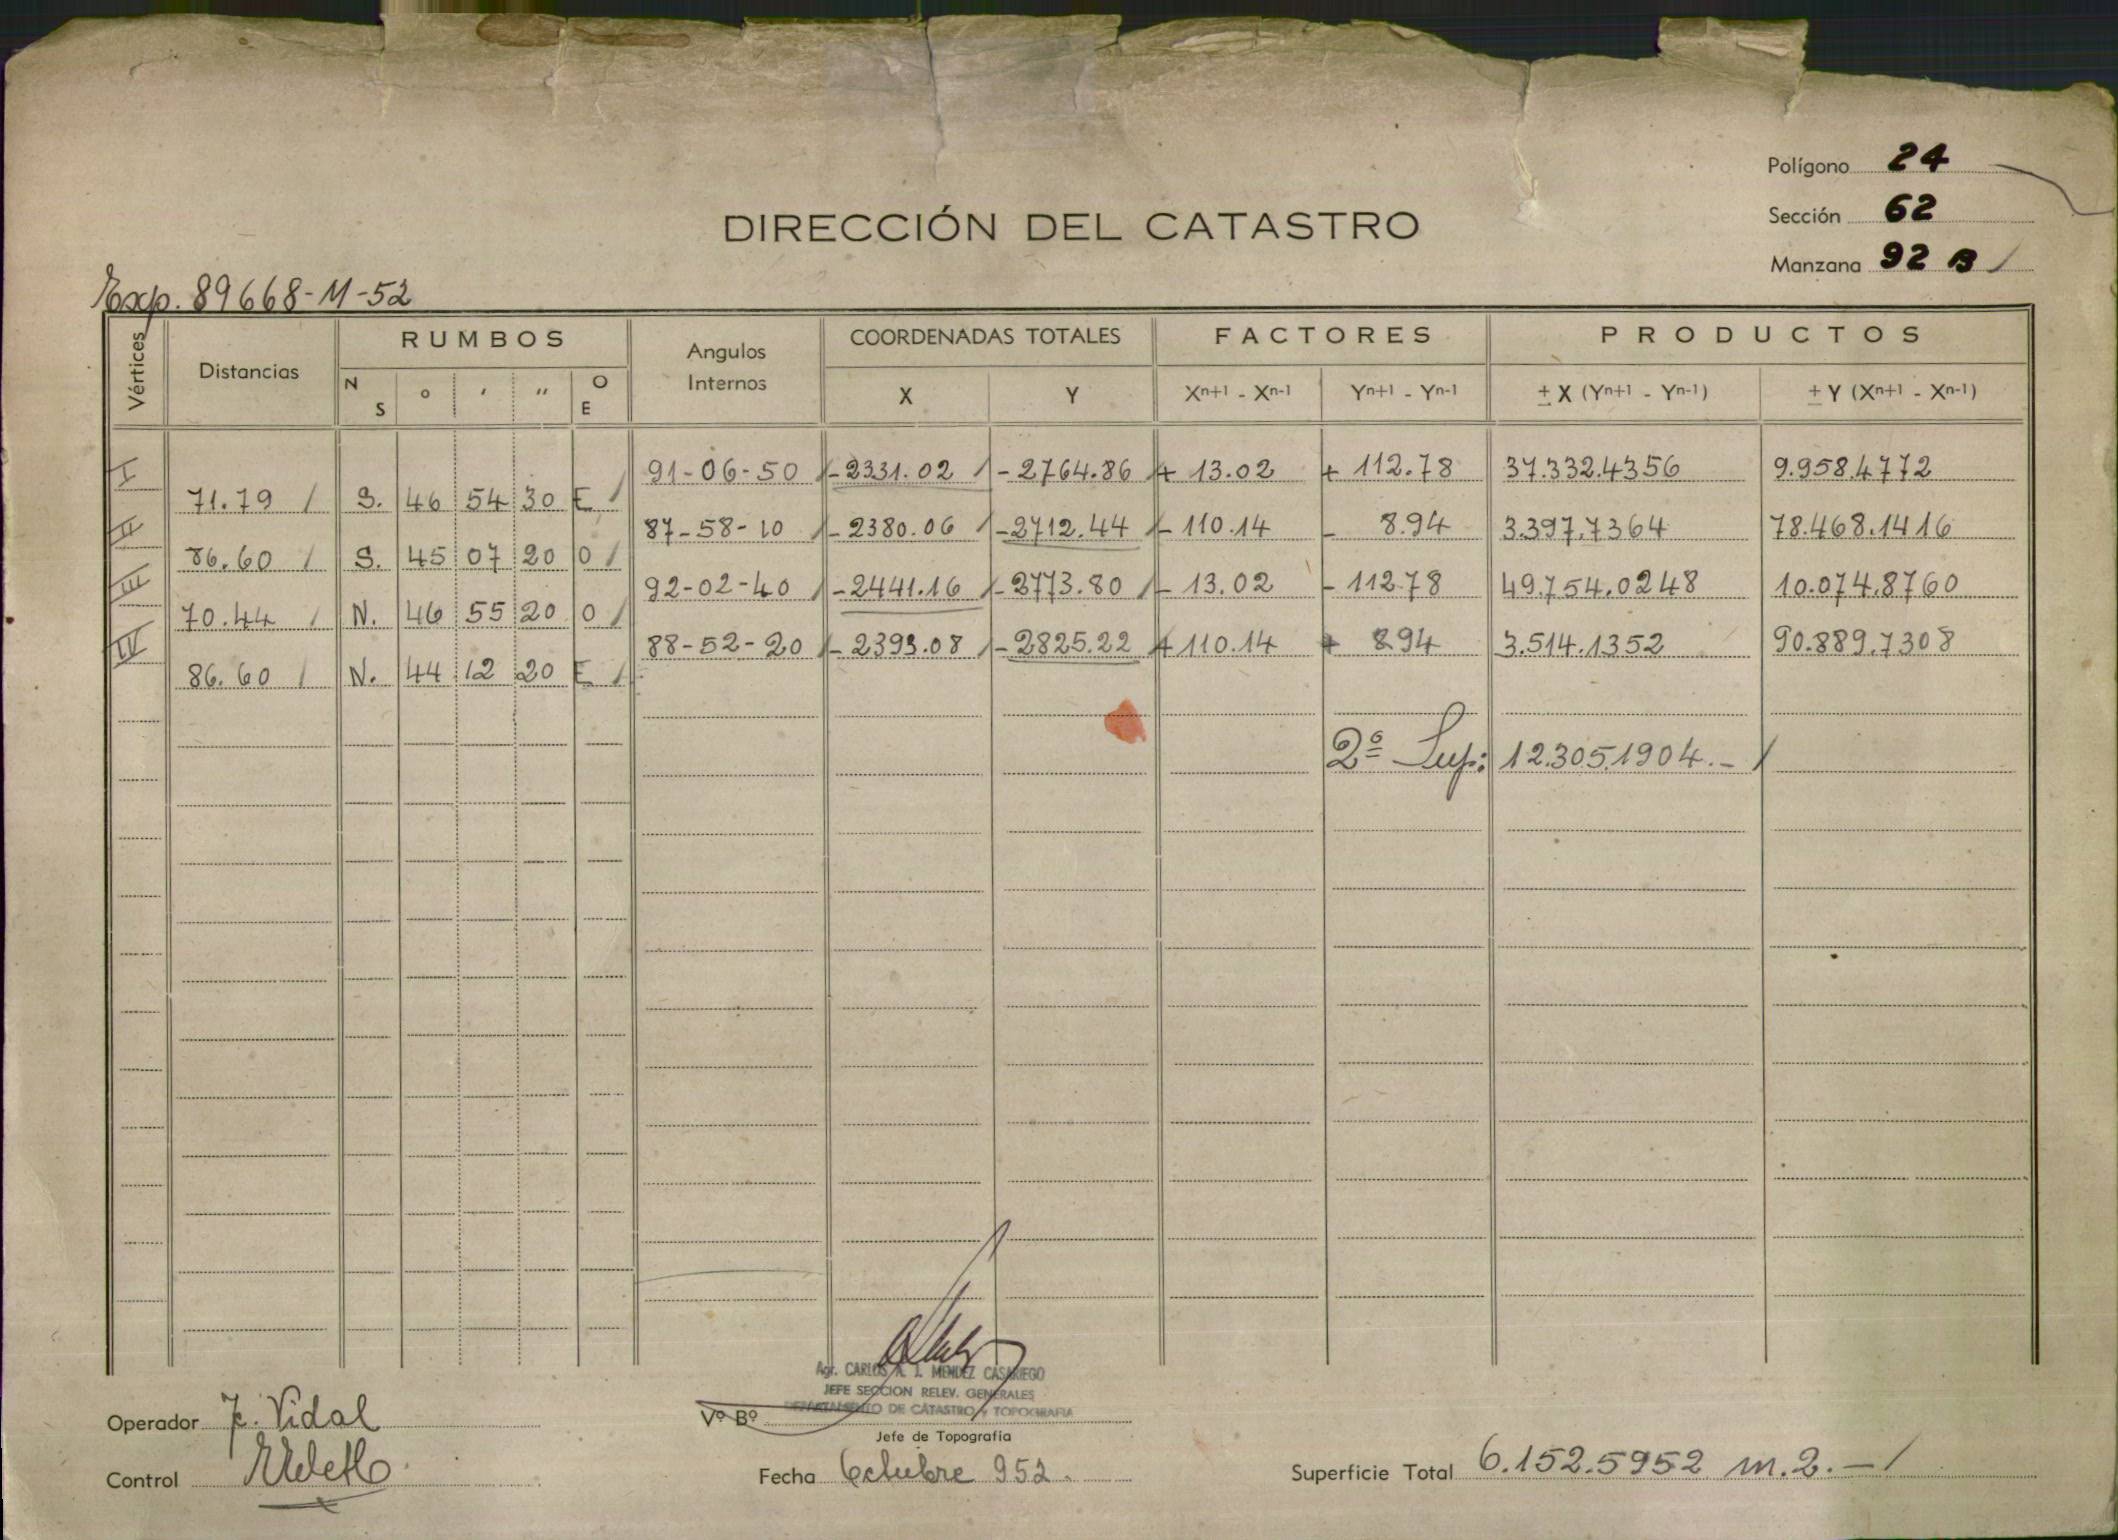 Polígono 24
DIRECCIÓN DEL CATASTRO
Sección 62
Manzana 92 B /
Exp. 89668-M-52
Vértices Distancias RUMBOS Angulos Internos COORDENADAS TOTALES FACTORES PRODUCTOS
N S ° ' '' O E X Y Xn+1 - Xn-1 Yn+1 - Yn-1 ± X (Yn+1 - Yn-1) ± Y (Xn+1 - Xn-1)
I 91-06-50 / -2331.02 / -2764.86 / + 13.02 + 112.78 37.332.4356 9.958.4772
71.79 / S. 46 54 30 E /
II 87-58-10 / -2380.06 / -2712.44 / - 110.14 - 8.94 3.397.7364 78.468.1416
86.60 / S. 45 07 20 O /
III 92-02-40 / -2441.16 / -2773.80 / - 13.02 - 112.78 49.754.0248 10.074.8760
70.44 / N. 46 55 20 O /
IV 88-52-20 / -2393.08 / -2825.22 / + 110.14 + 8.94 3.514.1352 90.889.7308
86.60 / N. 44 12 20 E /
2ª Sup: 12.305.1904.- /
Agr. CARLOS A. J. MENDEZ CASARIEGO
JEFE SECCION RELEV. GENERALES
DEPARTAMENTO DE CATASTRO y TOPOGRAFIA
Operador Vidal
Vº Bº
Jefe de Topografía
Control
Fecha Octubre 952.
Superficie Total 6.152.5952 m.2.- /